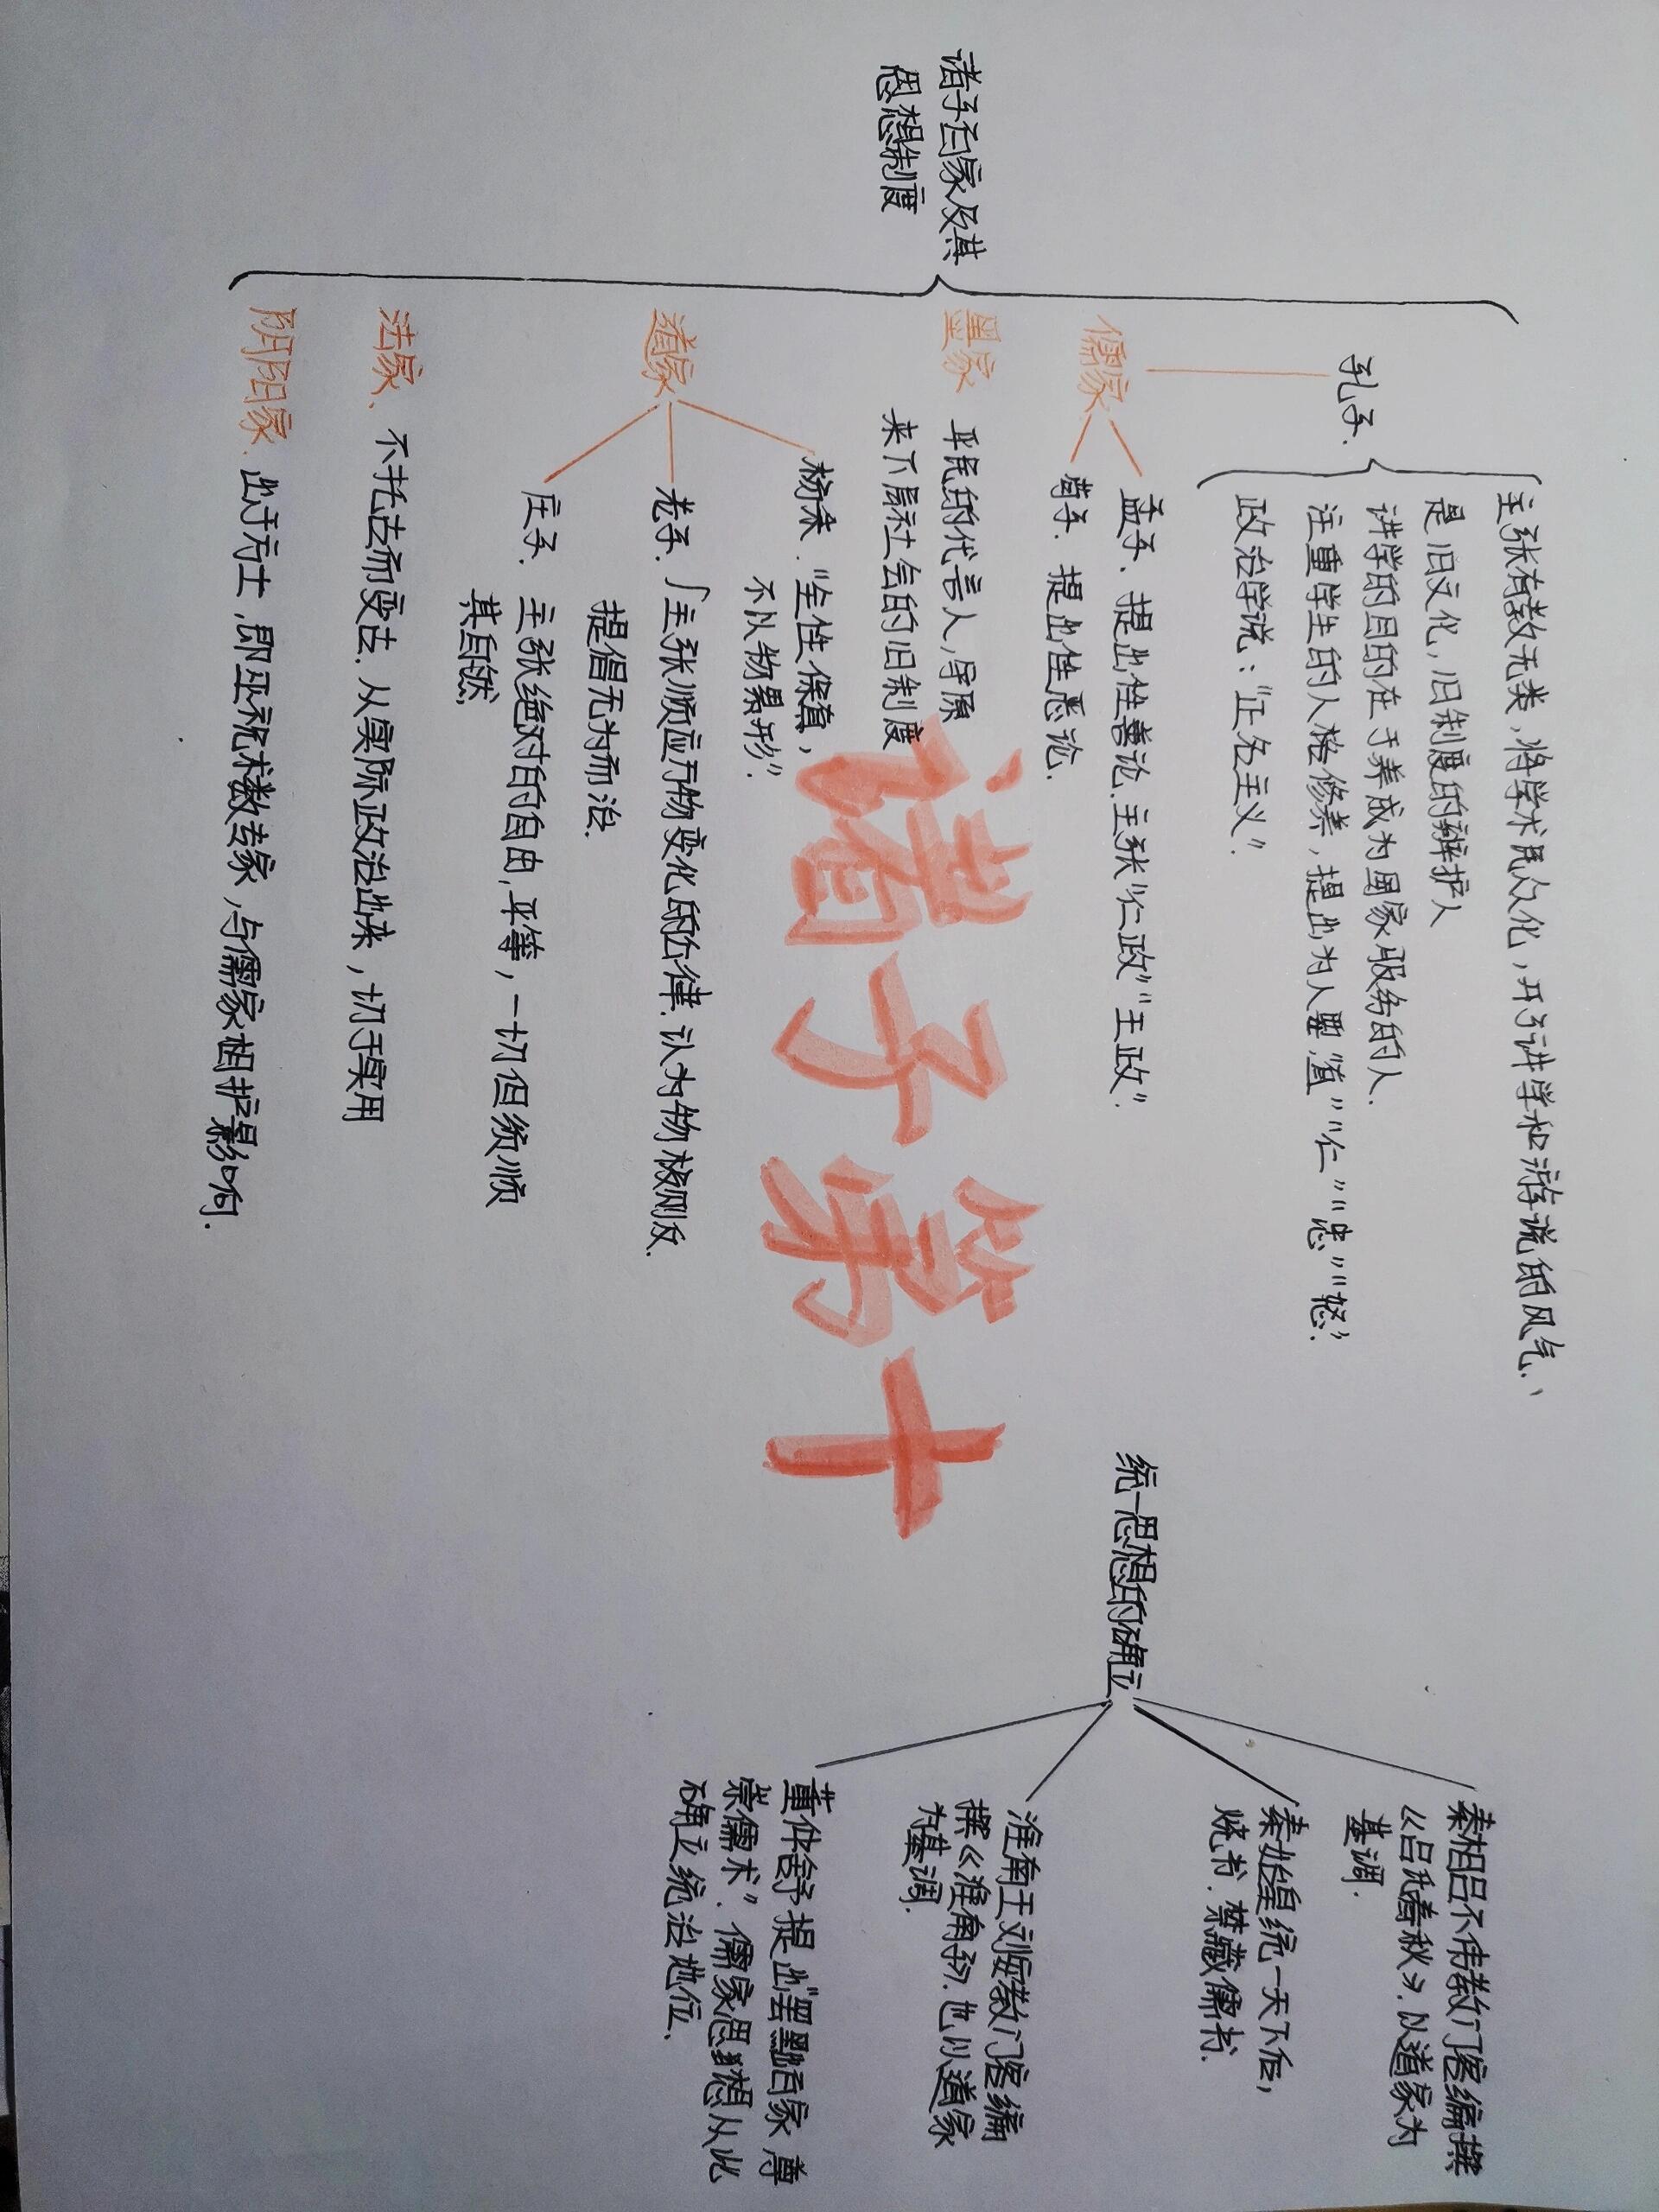 诸子第十
诸子百家及其
思想制度
儒家
孔子.
主张有教无类,将学术民众化,开引讲学和游说的风气.
是旧文化,旧制度的辩护人
讲学的目的在于养成为国家服务的人.
注重学生的人格修养,提出为人要"直""仁""忠""恕".
政治学说:"正名主义".
孟子.提出性善论.主张"仁政""王政".
荀子.提出性恶论.
墨家
平民的代言人,导原
来下层社会的旧制度
道家
杨朱."全性保真,
不以物累形".
老子.主张顺应万物变化的定律.认为物极则反.
提倡无为而治.
庄子.主张绝对的自由,平等,一切但须顺
其自然
法家.不托古而变古.从实际政治出来,切于实用
阴阳家.出于方士,即巫祝术数专家,与儒家相护影响.
统一思想的确立
秦相吕不韦教门客编撰
《吕氏春秋》.以道家为
基调.
秦始皇统一天下后,
烧书.禁藏儒书.
淮南王刘安教门客编
撰《淮南子》.也以道家
为基调.
董仲舒提出"罢黜百家尊
崇儒术".儒家思想从此
确立统治地位.